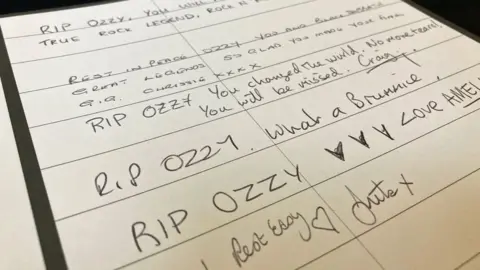 RIP OZZY, YOU WILL
TRUE ROCK LEGEND, ROCK N
REST IN PEACE OZZY YOU AND BLACK SABBATH
GREAT LEGENDS SO GLAD YOU MADE YOUR FINAL
G.G. CHRISSIE XXXX
RIP OZZY You changed the world. No more tears!
You will be missed. Craig
R.I.P OZZY. What a Brummie.
RIP OZZY ♥ ♥ ♥ LOVE AMEL
Rest Easy ♡ x